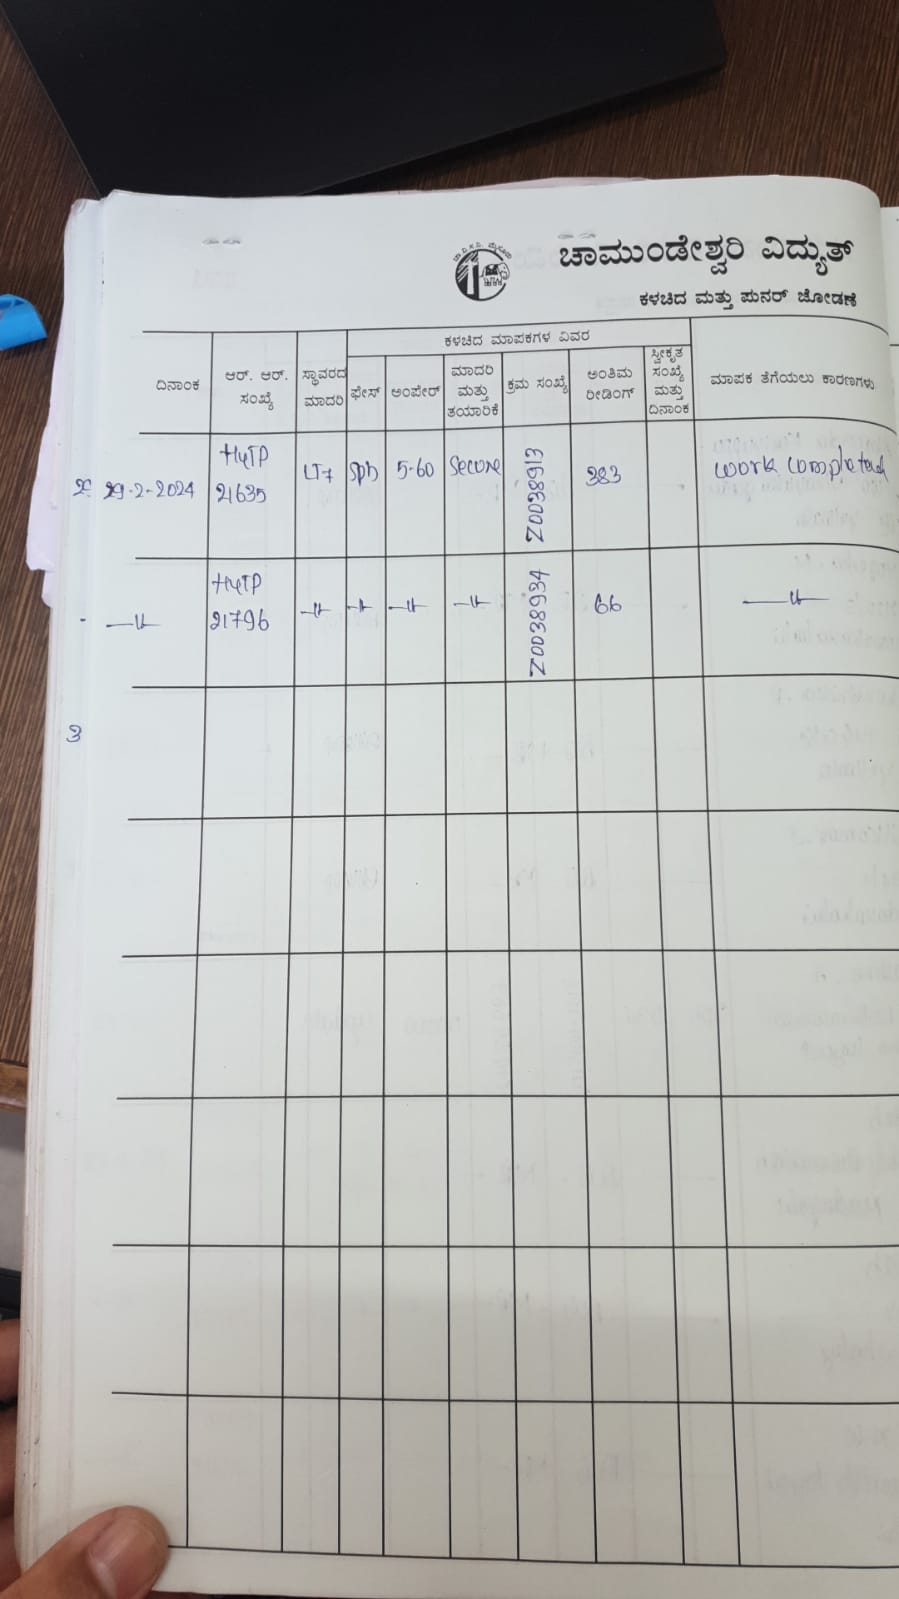 ಚಾಮುಂಡೇಶ್ವರಿ ವಿದ್ಯುತ್
ಕಳಚಿದ ಮತ್ತು ಪುನರ್ ಜೋಡಣೆ
ಕಳಚಿದ ಮಾಪಕಗಳ ವಿವರ
ದಿನಾಂಕ
ಆರ್. ಆರ್.
ಸಂಖ್ಯೆ
ಸ್ಥಾವರದ
ಮಾದರಿ
ಫೇಸ್
ಅಂಪೇರ್
ಮಾದರಿ
ಮತ್ತು
ತಯಾರಿಕೆ
ಕ್ರಮ ಸಂಖ್ಯೆ
ಅಂತಿಮ
ರೀಡಿಂಗ್
ಸ್ವೀಕೃತ
ಸಂಖ್ಯೆ
ಮತ್ತು
ದಿನಾಂಕ
ಮಾಪಕ ತೆಗೆಯಲು ಕಾರಣಗಳು
29-2-2024
HyTP
21635
LT7
Sph
5-60
Secure
Z0038913
383
work completed
HyTP
21796
Z0038934
66
3